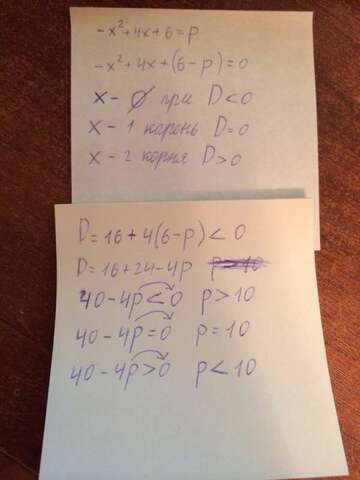 -x²+4x+6=p
-x²+4x+(6-p)=0
x - ∅ при D<0
x - 1 корень D=0
x - 2 корня D>0
D=16+4(6-p)<0
D=16+24-4p
40-4p<0 p>10
40-4p=0 p=10
40-4p>0 p<10